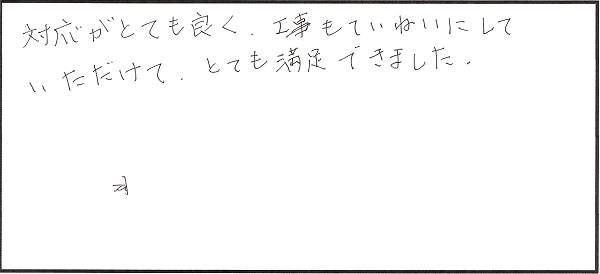 対応がとても良く、工事もていねいにして
いただけて、とても満足できました。